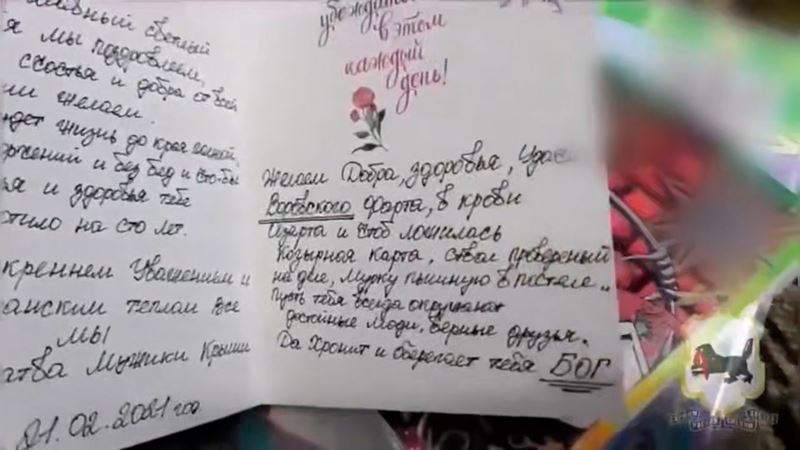 светлый
я мы поздравляем,
счастья и добра от всей
ши желаем.
жизнь до края
и без бед и что-бы
ья и здоровья тебе
тило на сто лет.
креннем Уважением и
анским теплом все
мы
атва Мужики Крыши
21.02.2021 год
в этом
каждый
день!
Желаем Добра, здоровья,
Воровского фарта, в крови
Азарта и чтоб ложилась
Козырная карта, ствол провереный
на деле, мурку пышную в постеле..
Пусть тебя всегда окружают
достойные люди, верные друзья.
Да хронит и оберегает тебя БОГ